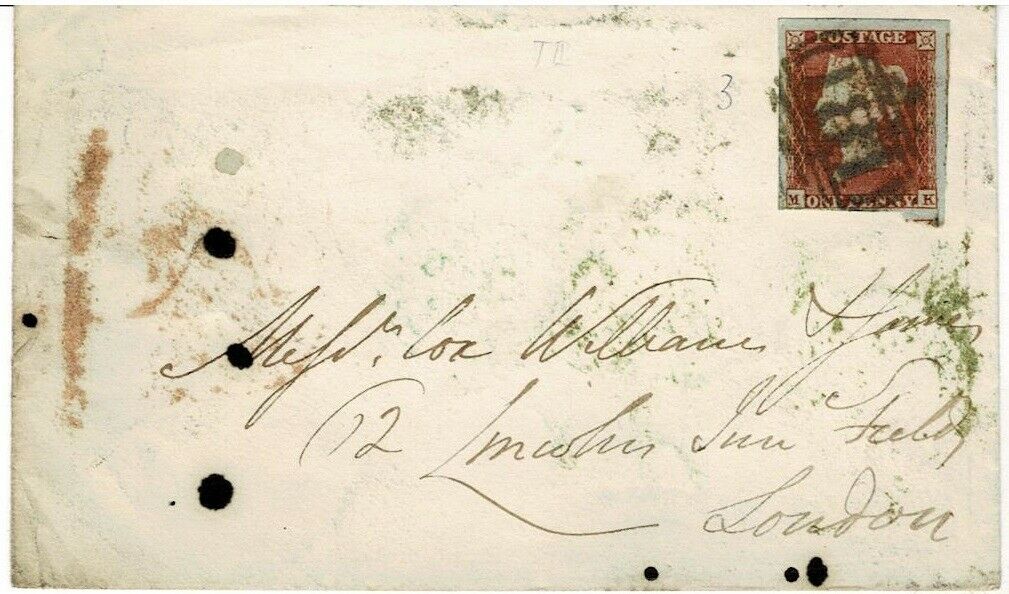 TII
3
POSTAGE
M ONE PENNY K
Messrs. Cox Williams & Jones
12 Lincolns Inn Fields
London